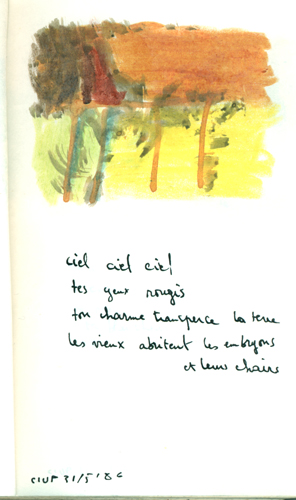 ciel ciel ciel
tes yeux rougis
ton charme transperce la terre
les vieux abritent les embryons
et leurs chairs
31/5/86